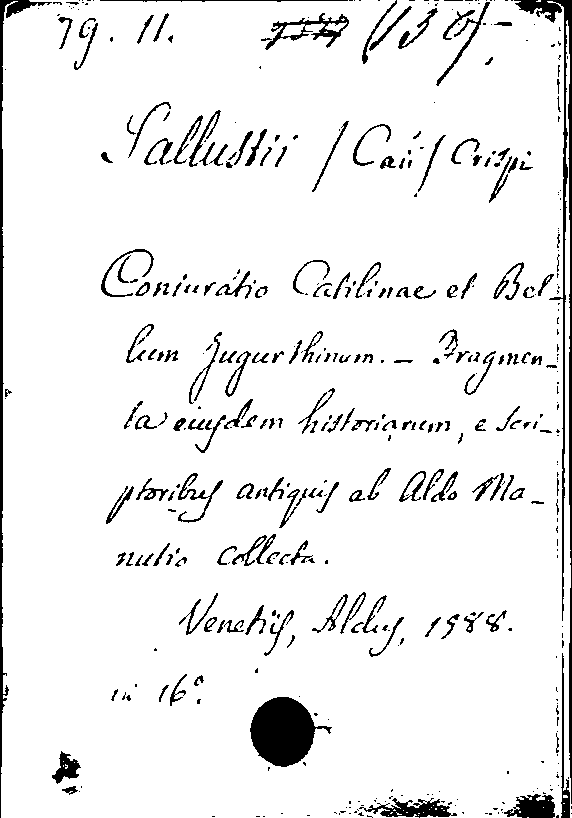 79. 11. (130).
Sallustii / Caii / Crispi
Coniuratio Catilinae et Bel-
lum Jugurthinum. - Fragmen-
ta eiusdem historiarum, e scri-
ptoribus antiquis ab Aldo Ma-
nutio collecta.
Venetiis, Aldus, 1588.
in 16°.